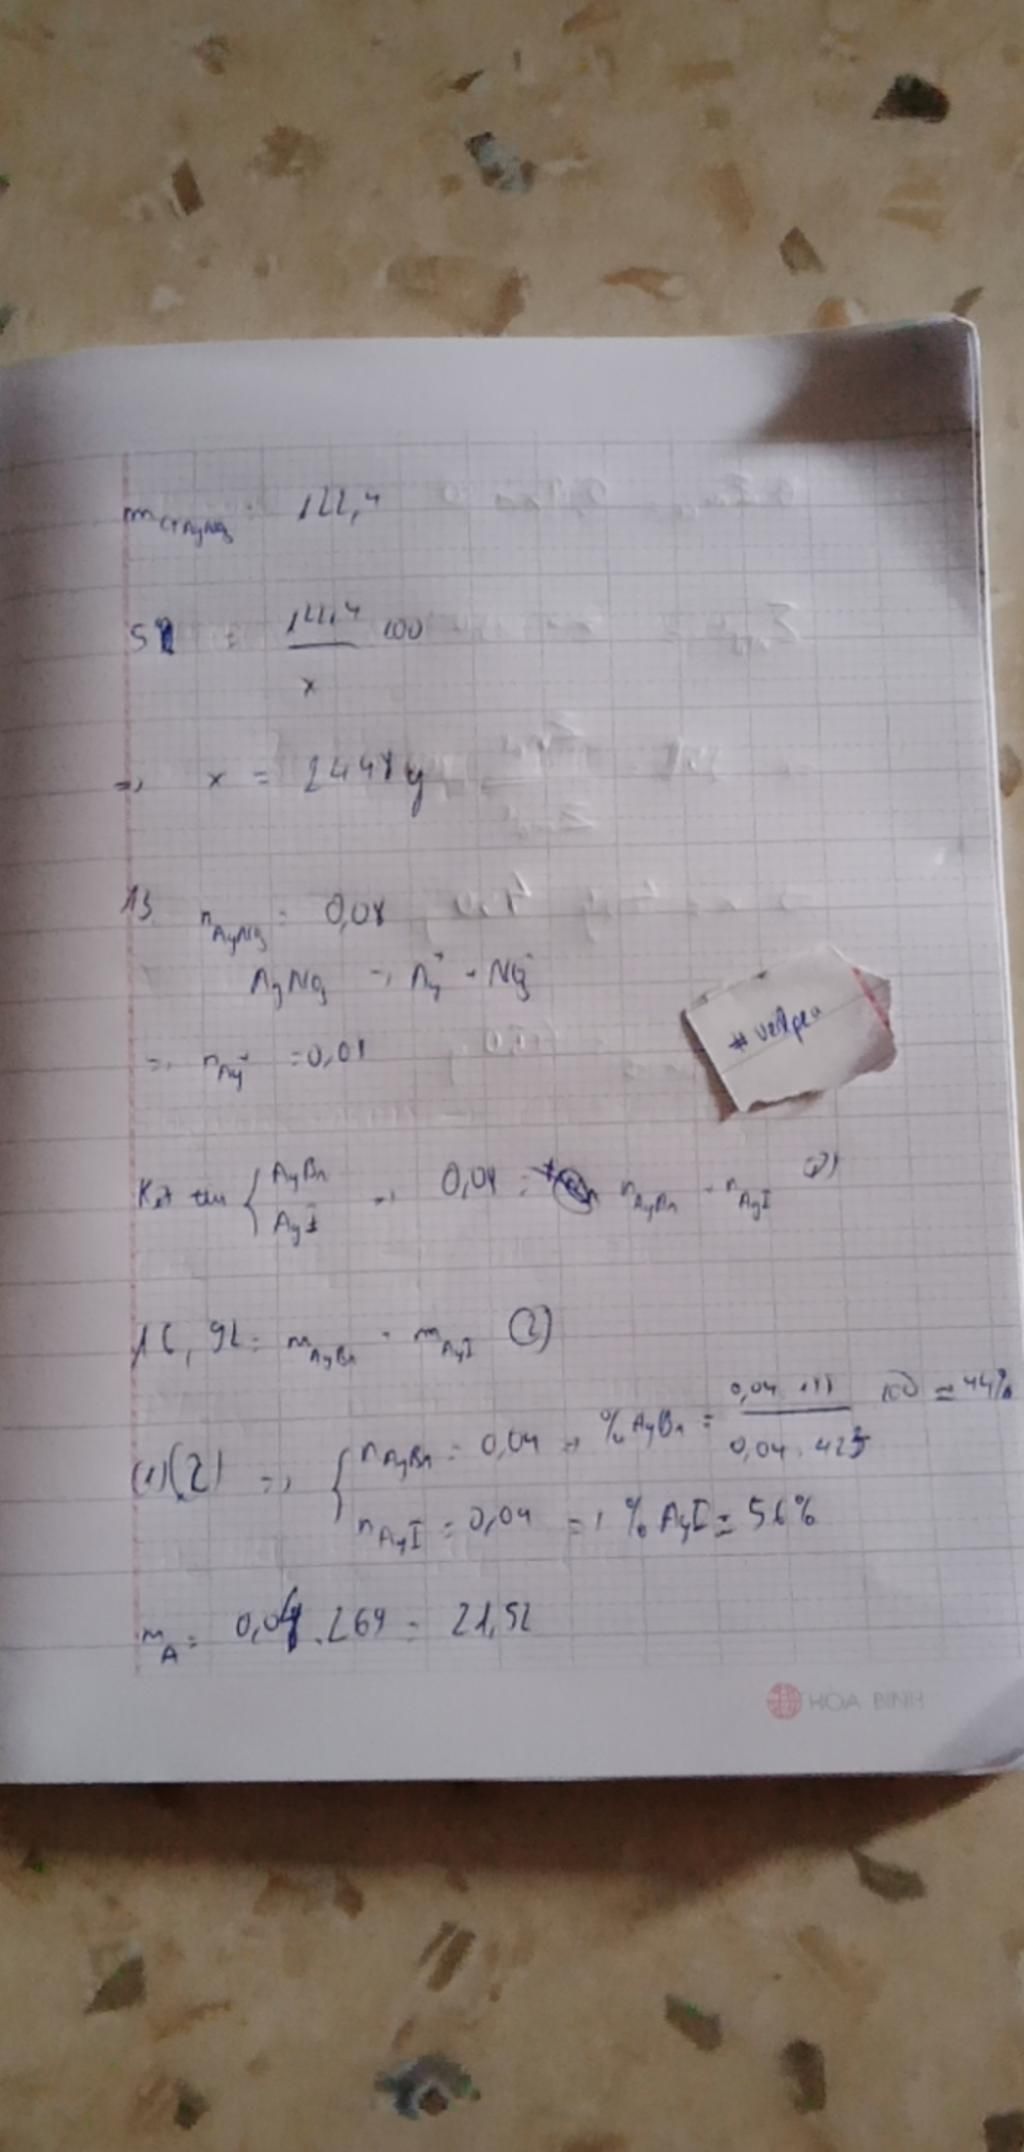 m_ctAgNO3 = 122,4
5% = 122,4/x 100
=> x = 2448g
13 n_AgNO3 = 0,08
AgNO3 -> Ag+ + NO3-
=> n_Ag+ = 0,08
# vezpea
Kết tủa { AgBr AgI => 0,08 = n_AgBr + n_AgI (1)
16,92 = m_AgBr + m_AgI (2)
(1)(2) => { n_AgBr = 0,04 => % AgBr = 0,04 . 188 / 0,04 . 423 100 = 44%
n_AgI = 0,04 => % AgI = 56%
m_A = 0,08 . 269 = 21,52
HÒA BÌNH